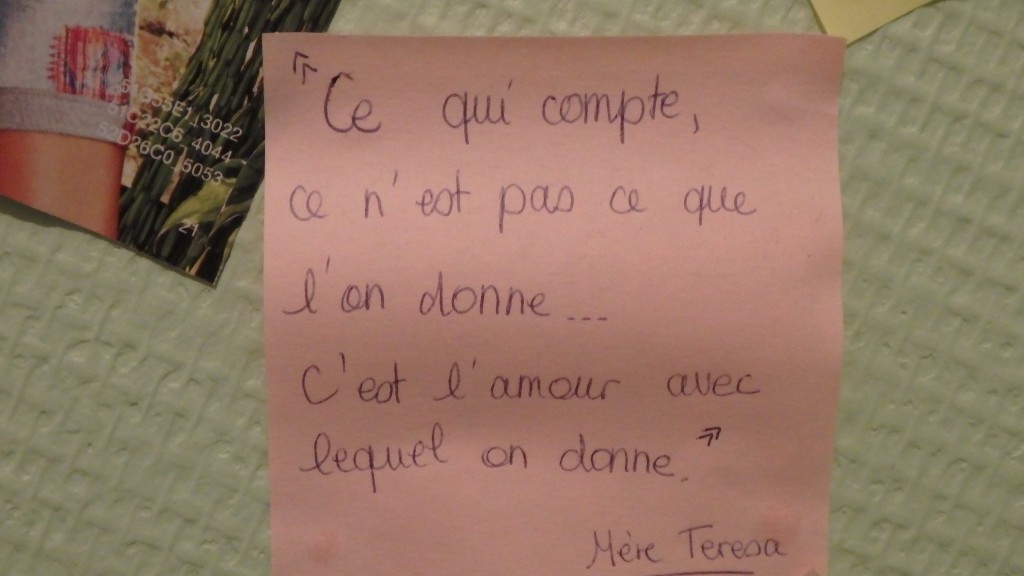 « Ce qui compte,
ce n'est pas ce que
l'on donne...
C'est l'amour avec
lequel on donne. »
Mère Teresa
3022
4044
5053
21